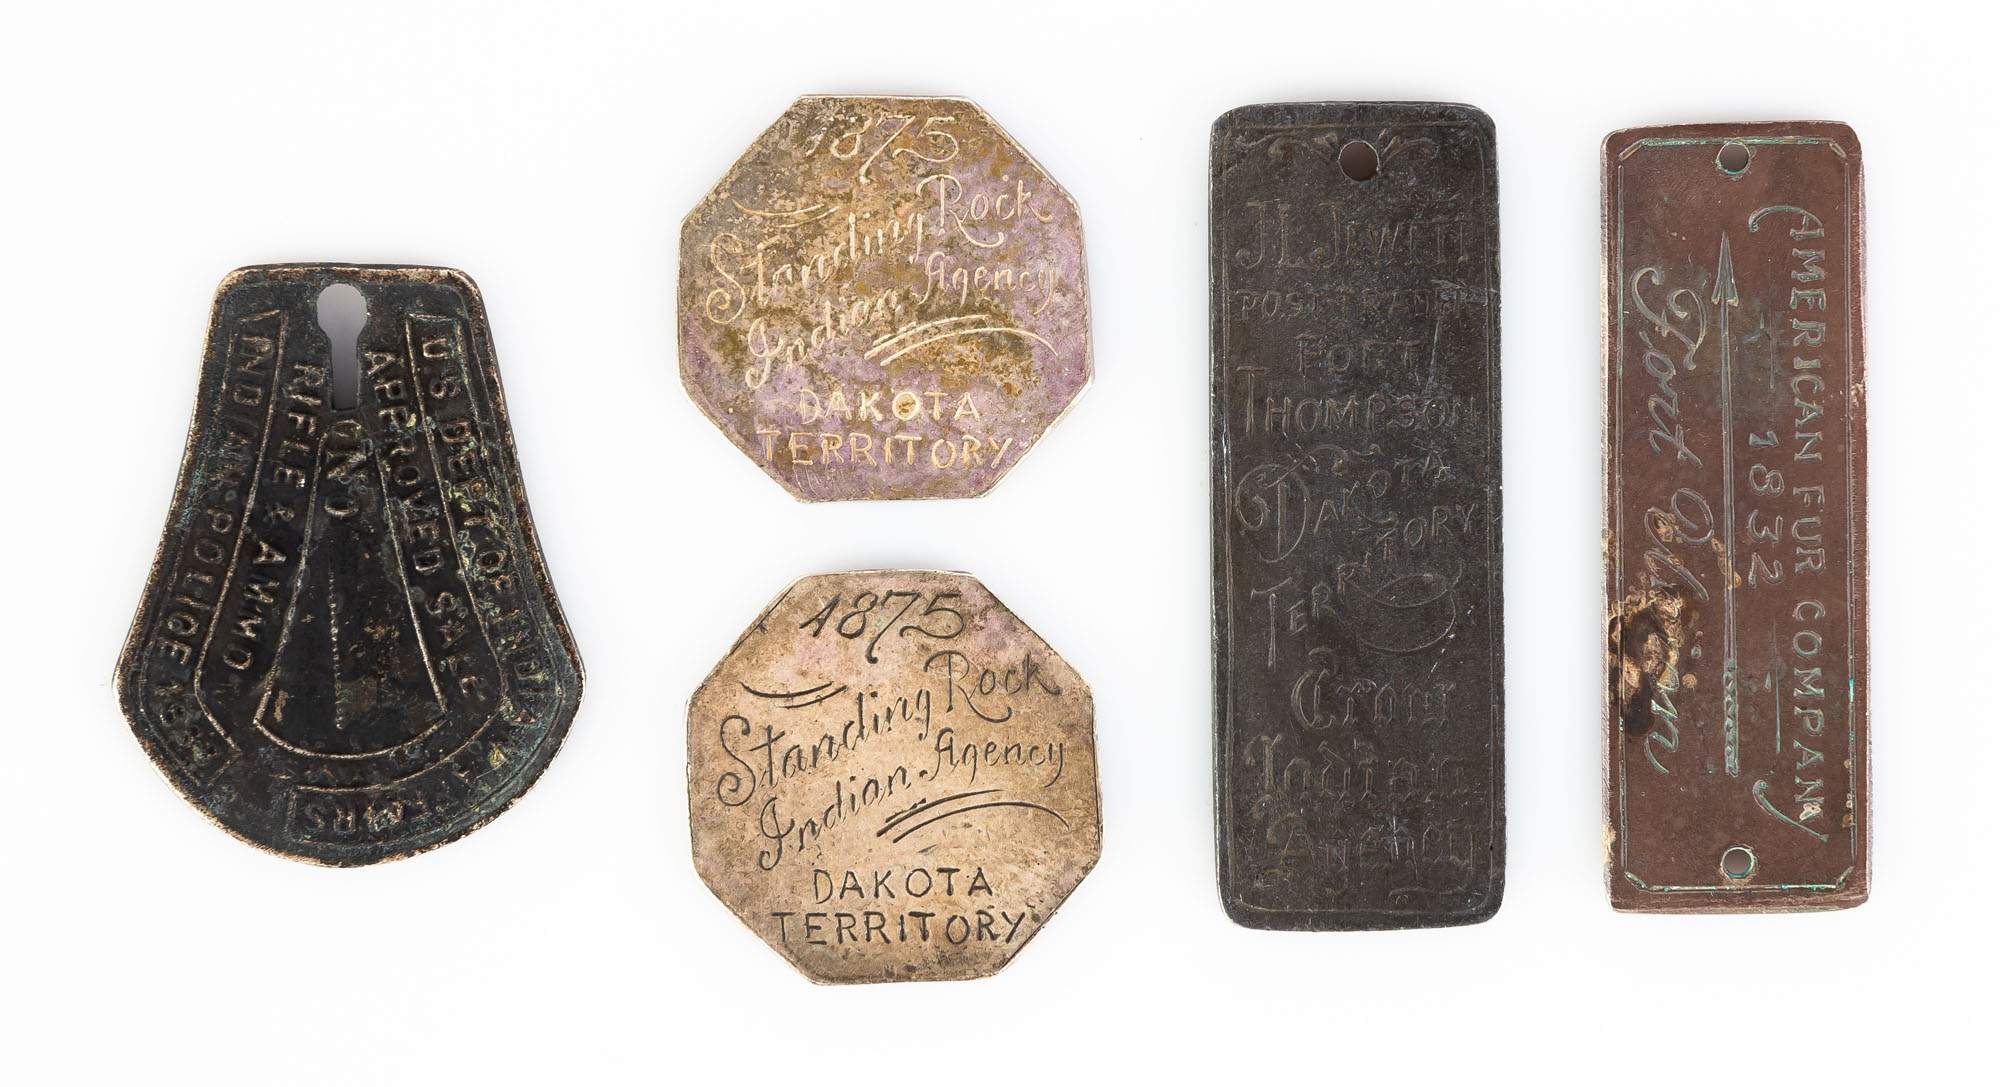 U.S DEPT OF INDIAN AFFAIRS
APPROVED SALE
NO
RIFLE & AMMO
INDIAN POLICE
1875
Standing Rock
Indian Agency
DAKOTA
TERRITORY
1875
Standing Rock
Indian Agency
DAKOTA
TERRITORY
JL JEWETT
POST TRADER
FORT
THOMPSON
DAKOTA
TERRITORY
Crow
Indian
Agency
AMERICAN FUR COMPANY
1832
Fort